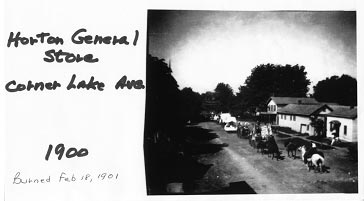 Horton General
Store
Corner Lake Ave.
1900
Burned Feb 18, 1901